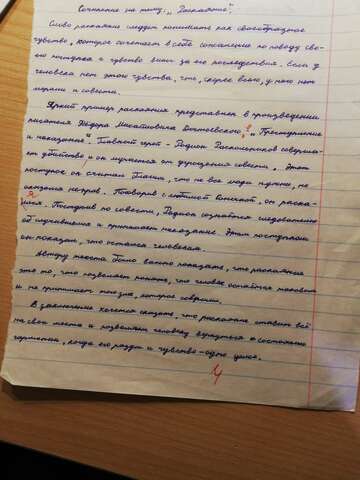 Сочинение на тему: „Раскаяние".
Слово раскаяние следует понимать как своеобразное
чувство, которое сочетает в себе сожаление по поводу сво-
его поступка и чувство вины за его последствия. Если у
человека нет этого чувства, то, скорее всего, у него нет
морали и совести.
Яркий пример раскаяния представлен в произведении
писателя Фёдора Михайловича Достоевского „Преступление
и наказание". Главный герой - Родион Раскольников соверша-
ет убийство и он мучается от угрызения совести. Этот
поступок он считал благим, что не все люди нужны, но
оказался неправ. Поговорив с любимой он раска-
ялся. Поступив по совести, Родион сознаётся следователю
об и принимает наказание. Этим поступком
он показал, что остался человеком.
Автору текста было важно показать, что раскаяние
это то, что позволяет понять, что человек остаётся человеком
и не принимает то зло, которое совершил.
В заключение хочется сказать, что раскаяние ставит всё
на свои места и позволяет человеку вернуться в состояние
гармонии, когда его разум и чувства - одно целое.
4